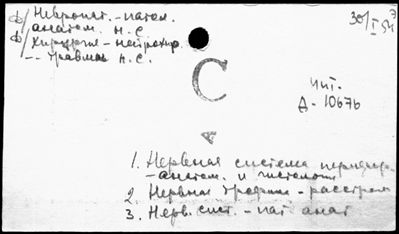 ф/ Невропат. - патол.
анатом. Н.С.
ф/ Хирургия - нейрохир.
-- травмы Н.С.
30/I 54
С
Чит.
Д-10676
1. Нервная система перифер.
- анатом. и гистология
2. Нервная трофика - расстром
3. Нерв. сист. - пат. анат